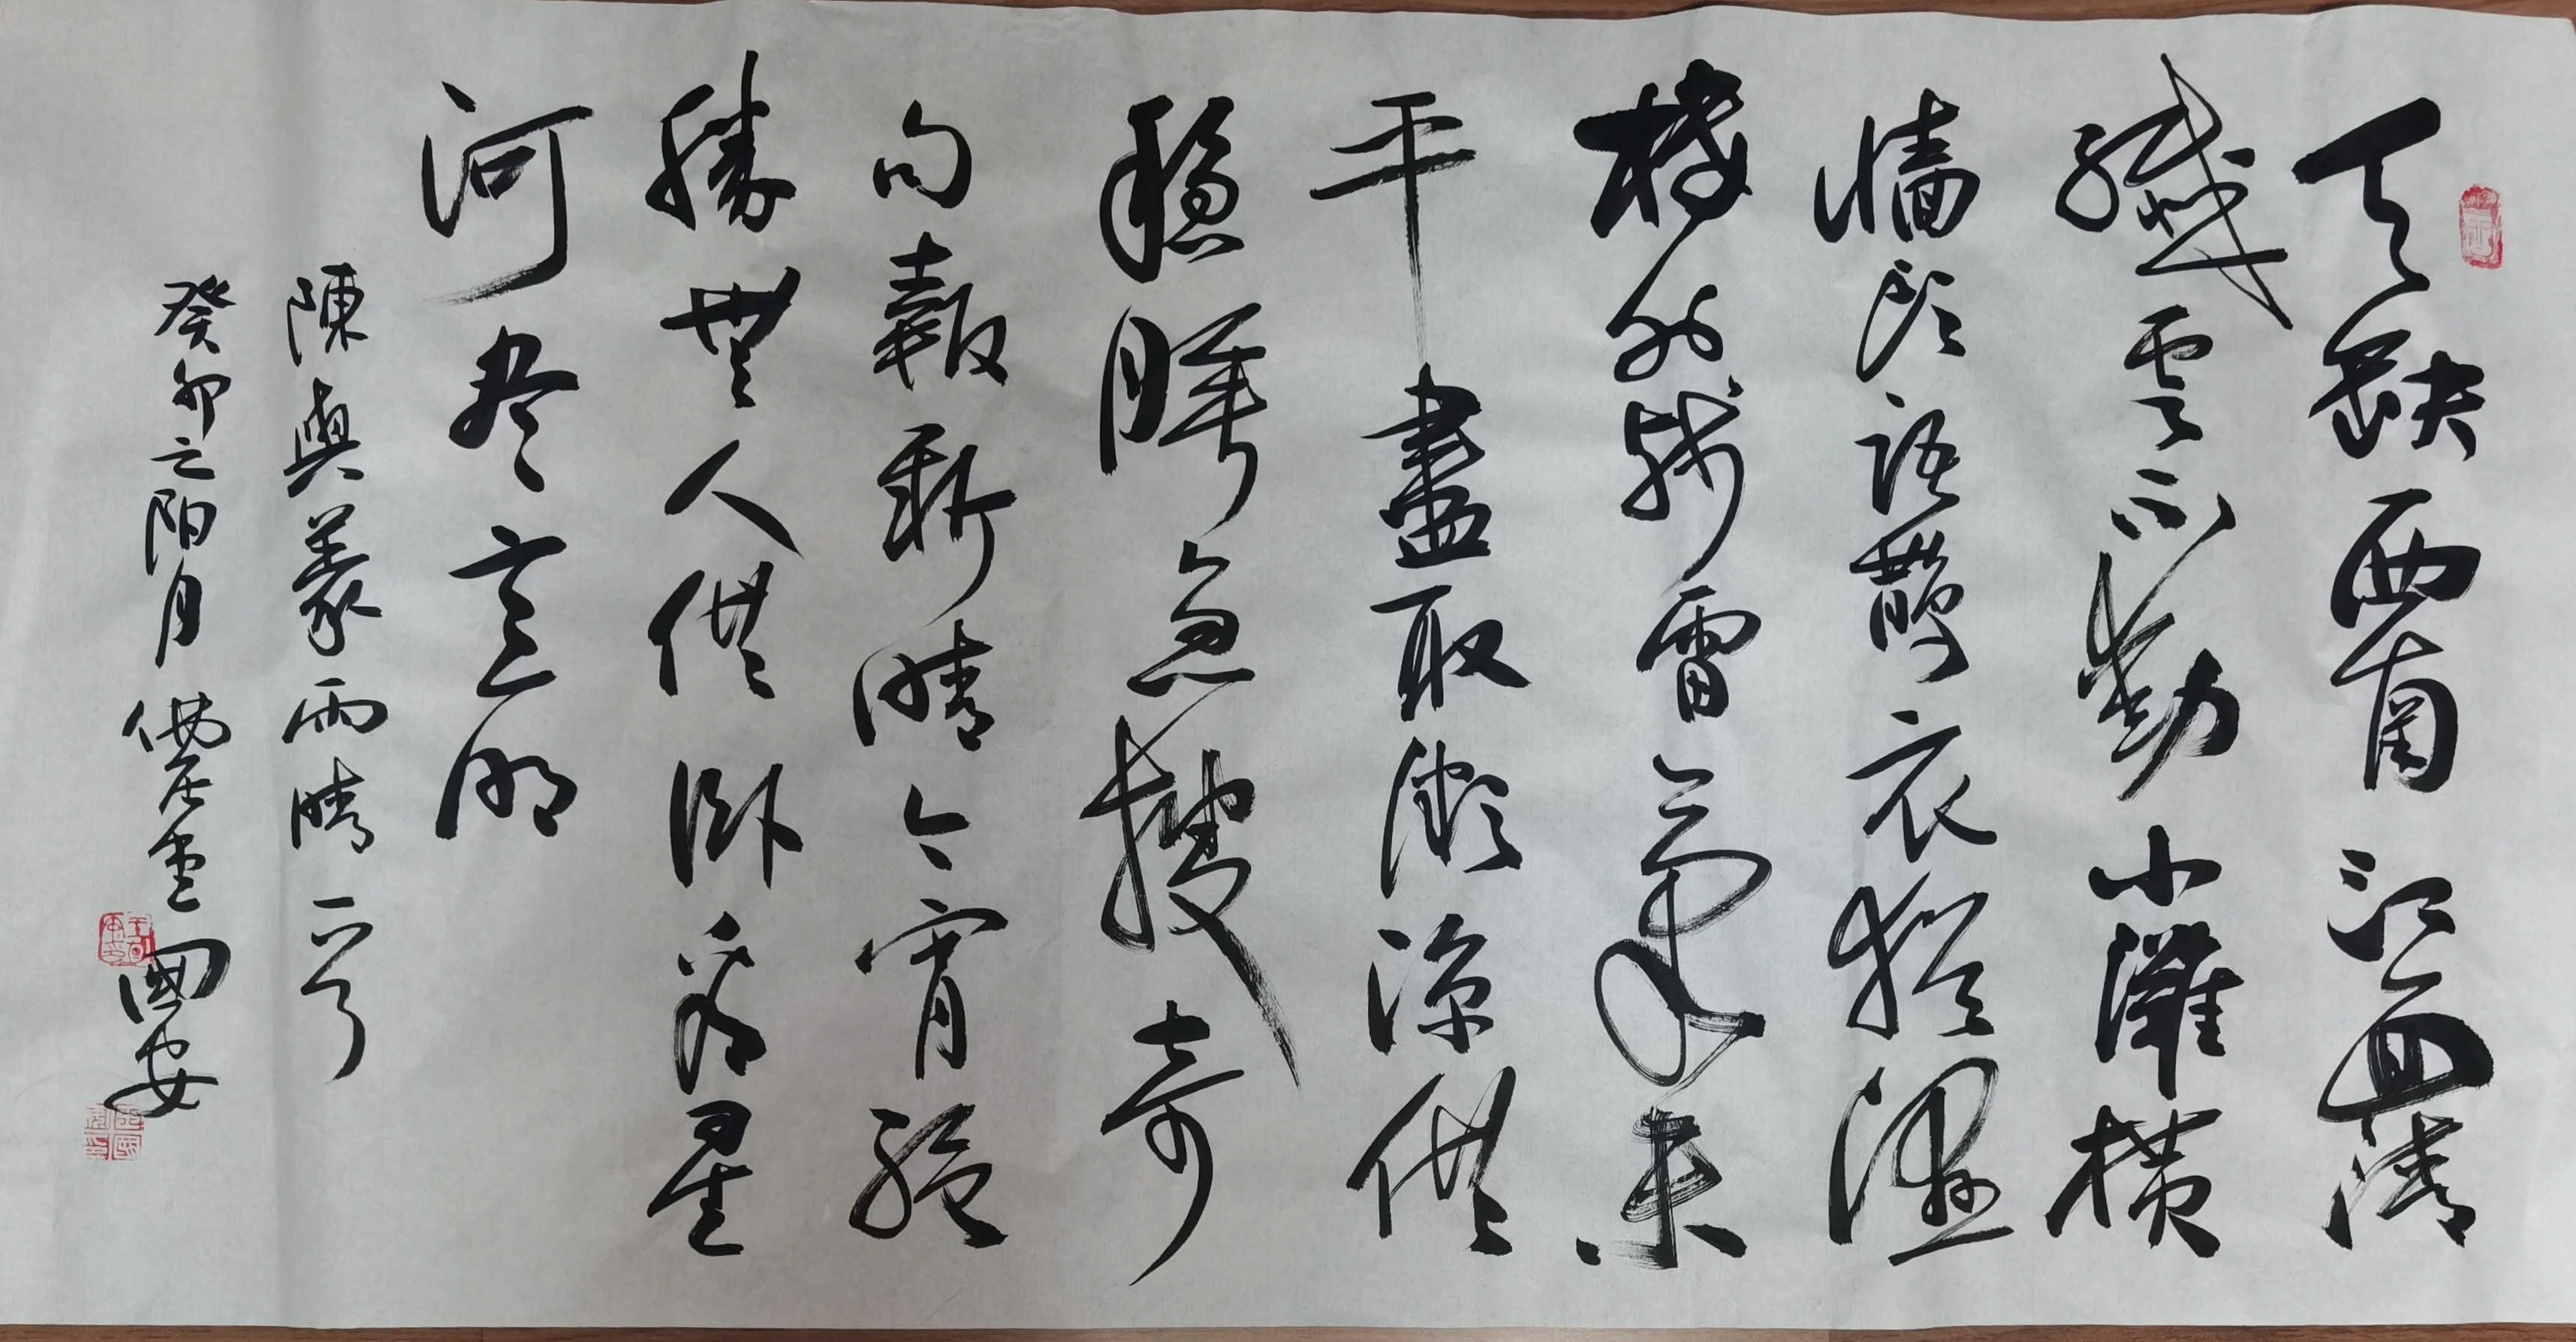 天缺西南江面清
纖雲不動小灘橫
墻頭語鵲衣猶濕
樓外殘雷氣未
平盡取微涼供
穩睡急搜奇
句報新晴今宵絕
勝無人供臥看星
河尽意明
陳與義雨晴一首
癸卯之阳月 國安